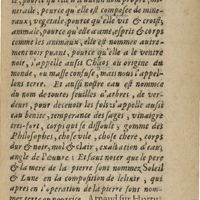 nerale, pource qu'elle est composee de mine-
raux, vegetale, pource qu'elle vit & croist,
animale, pource qu'elle a ame, esprit & corps
comme les animaux, elle est nommee autre-
ment noir puant, pource qu'elle a le ventre
noir, s'appelle aussi Chaos ou origine du
monde, ou masse confuse, mais nous l'appel-
lons terre. Et aussi nostre eau est nommee
du nom de toutes fueilles d'arbres, de ver-
deurs, pour decevoir les folz s'appelle aussi
eau benite, temperance des sages, vinaigre
tres-fort, corps qui se dissoult, gomme des
Philosophes, chose vile, chose chere, corps
dur & noir, mol & clair, exaltation d'eau,
angle de l'œuure. Et faut noter que le pere
& la mere de la pierre sont nommez Soleil
& Lune en la composition de l'elixir, qui
apres en l'operation de la pierre sont nom-